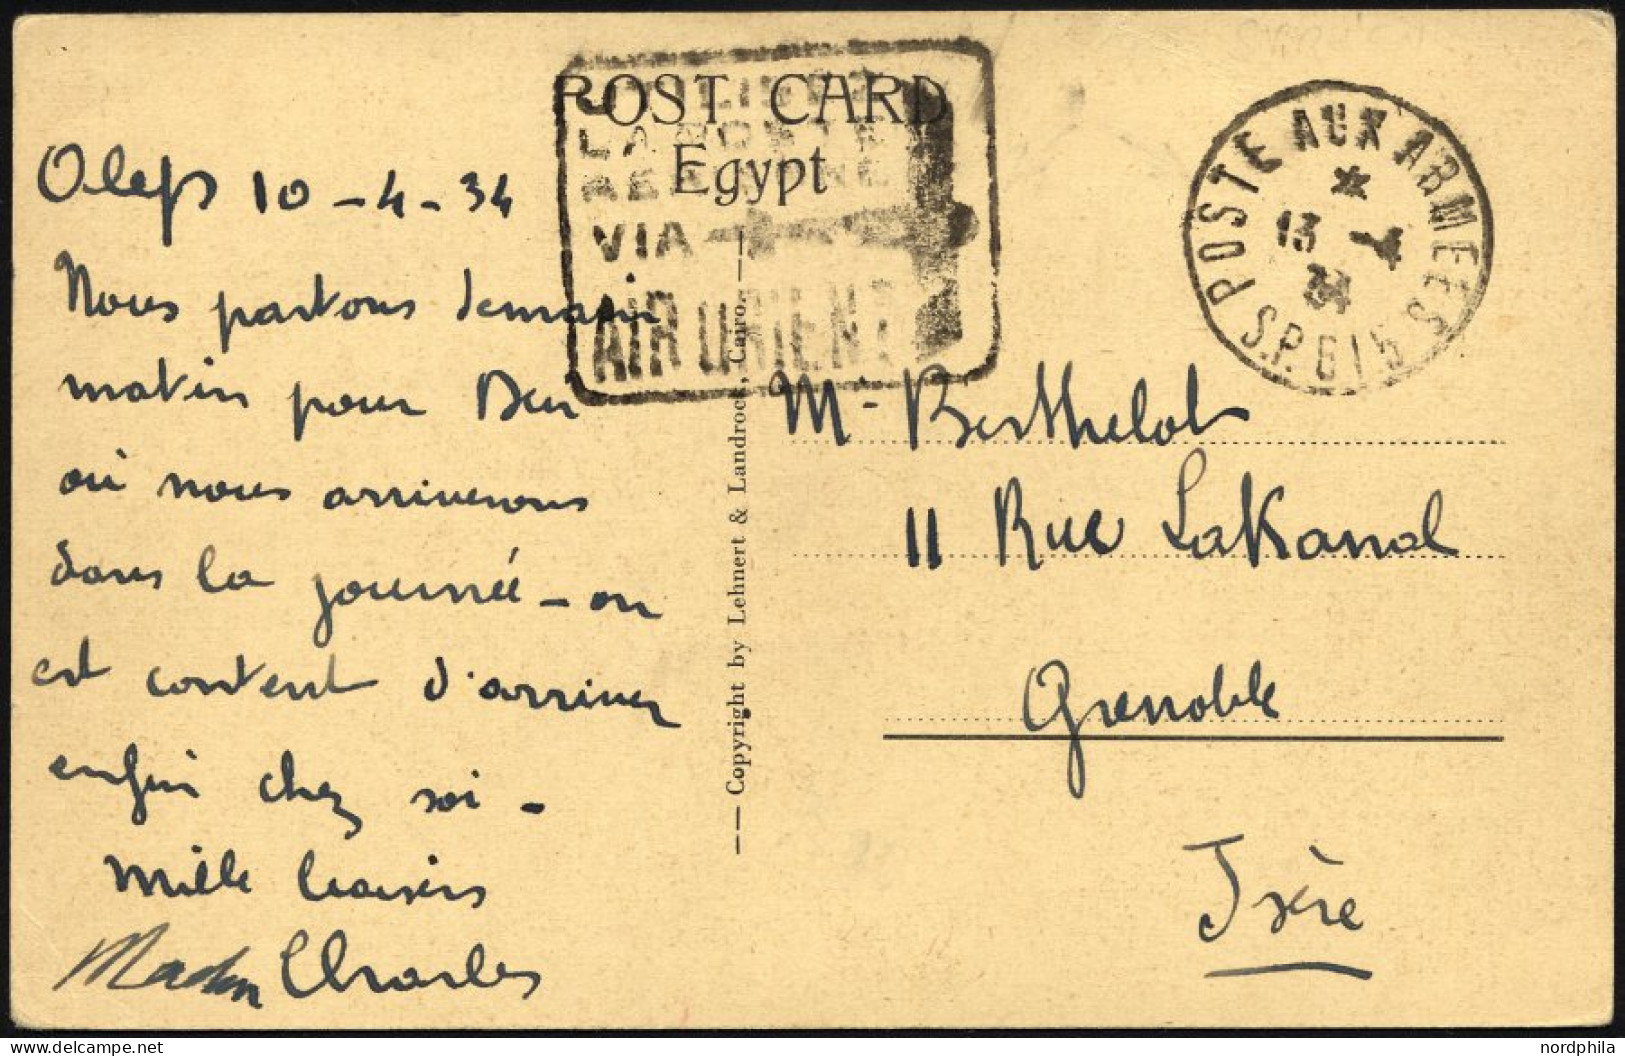 POST CARD
Egypt
LA POSTE
VIA
AIR ORIENT
POSTE AUX ARMEES
13 -4
34
S.P. 615
Alep 10-4-34
Nous partons demain
matin pour Der
où nous arriverons
dans la journée - on
est content d'arriver
enfin chez soi -
Mille baisers
Charles
—— Copyright by Lehnert & Landrock, Cairo. ——
Mr Berthelot
11 Rue Lakanal
Grenoble
Isère
nordphila